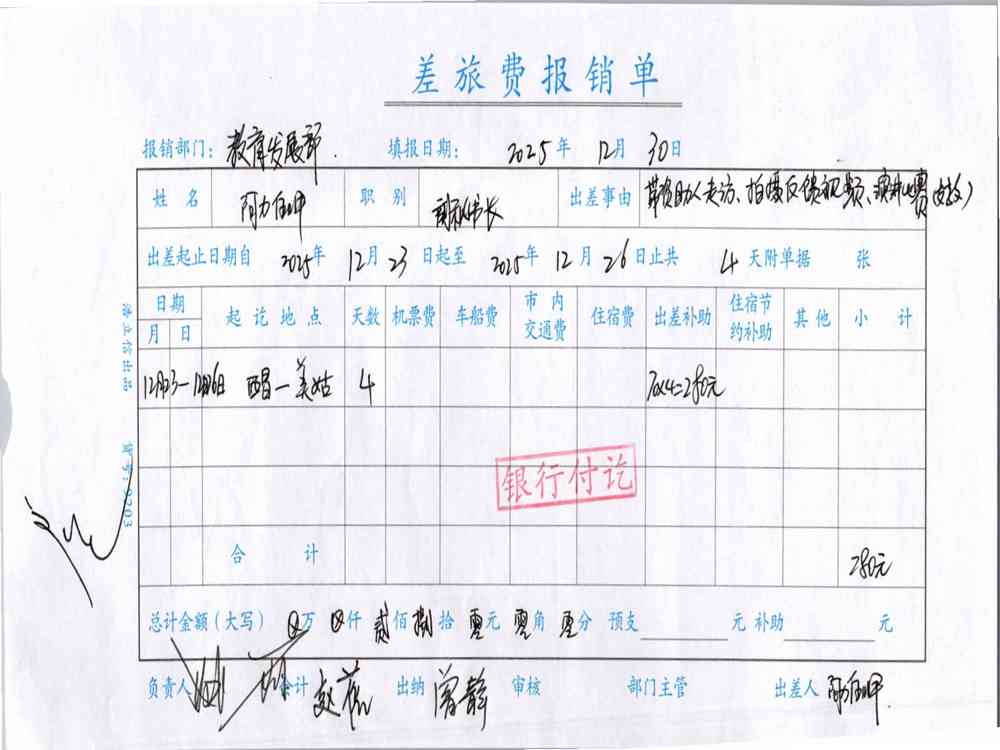 差旅费报销单
报销部门：教育发展部. 填报日期： 2025年 12月 30日
姓名 阿力伍甲 职别 副秘书长 出差事由 带资助人走访、拍摄反馈视频、演讲比赛(美姑)
出差起止日期自 2025年 12月 23日起至 2025年 12月 26日止共 4天附单据 张
日期 起讫地点 天数 机票费 车船费 市内交通费 住宿费 出差补助 住宿节约补助 其他 小计
月 日
12月23—12月26日 西昌—美姑 4 70x4=280元
银行付讫
合计 280元
总计金额（大写） 万 仟 贰佰 捌拾 零元 零角 零分 预支 元 补助 元
负责人 会计 赵 出纳 曾静 审核 部门主管 出差人 阿力伍甲
浩立信出品 货号：9203